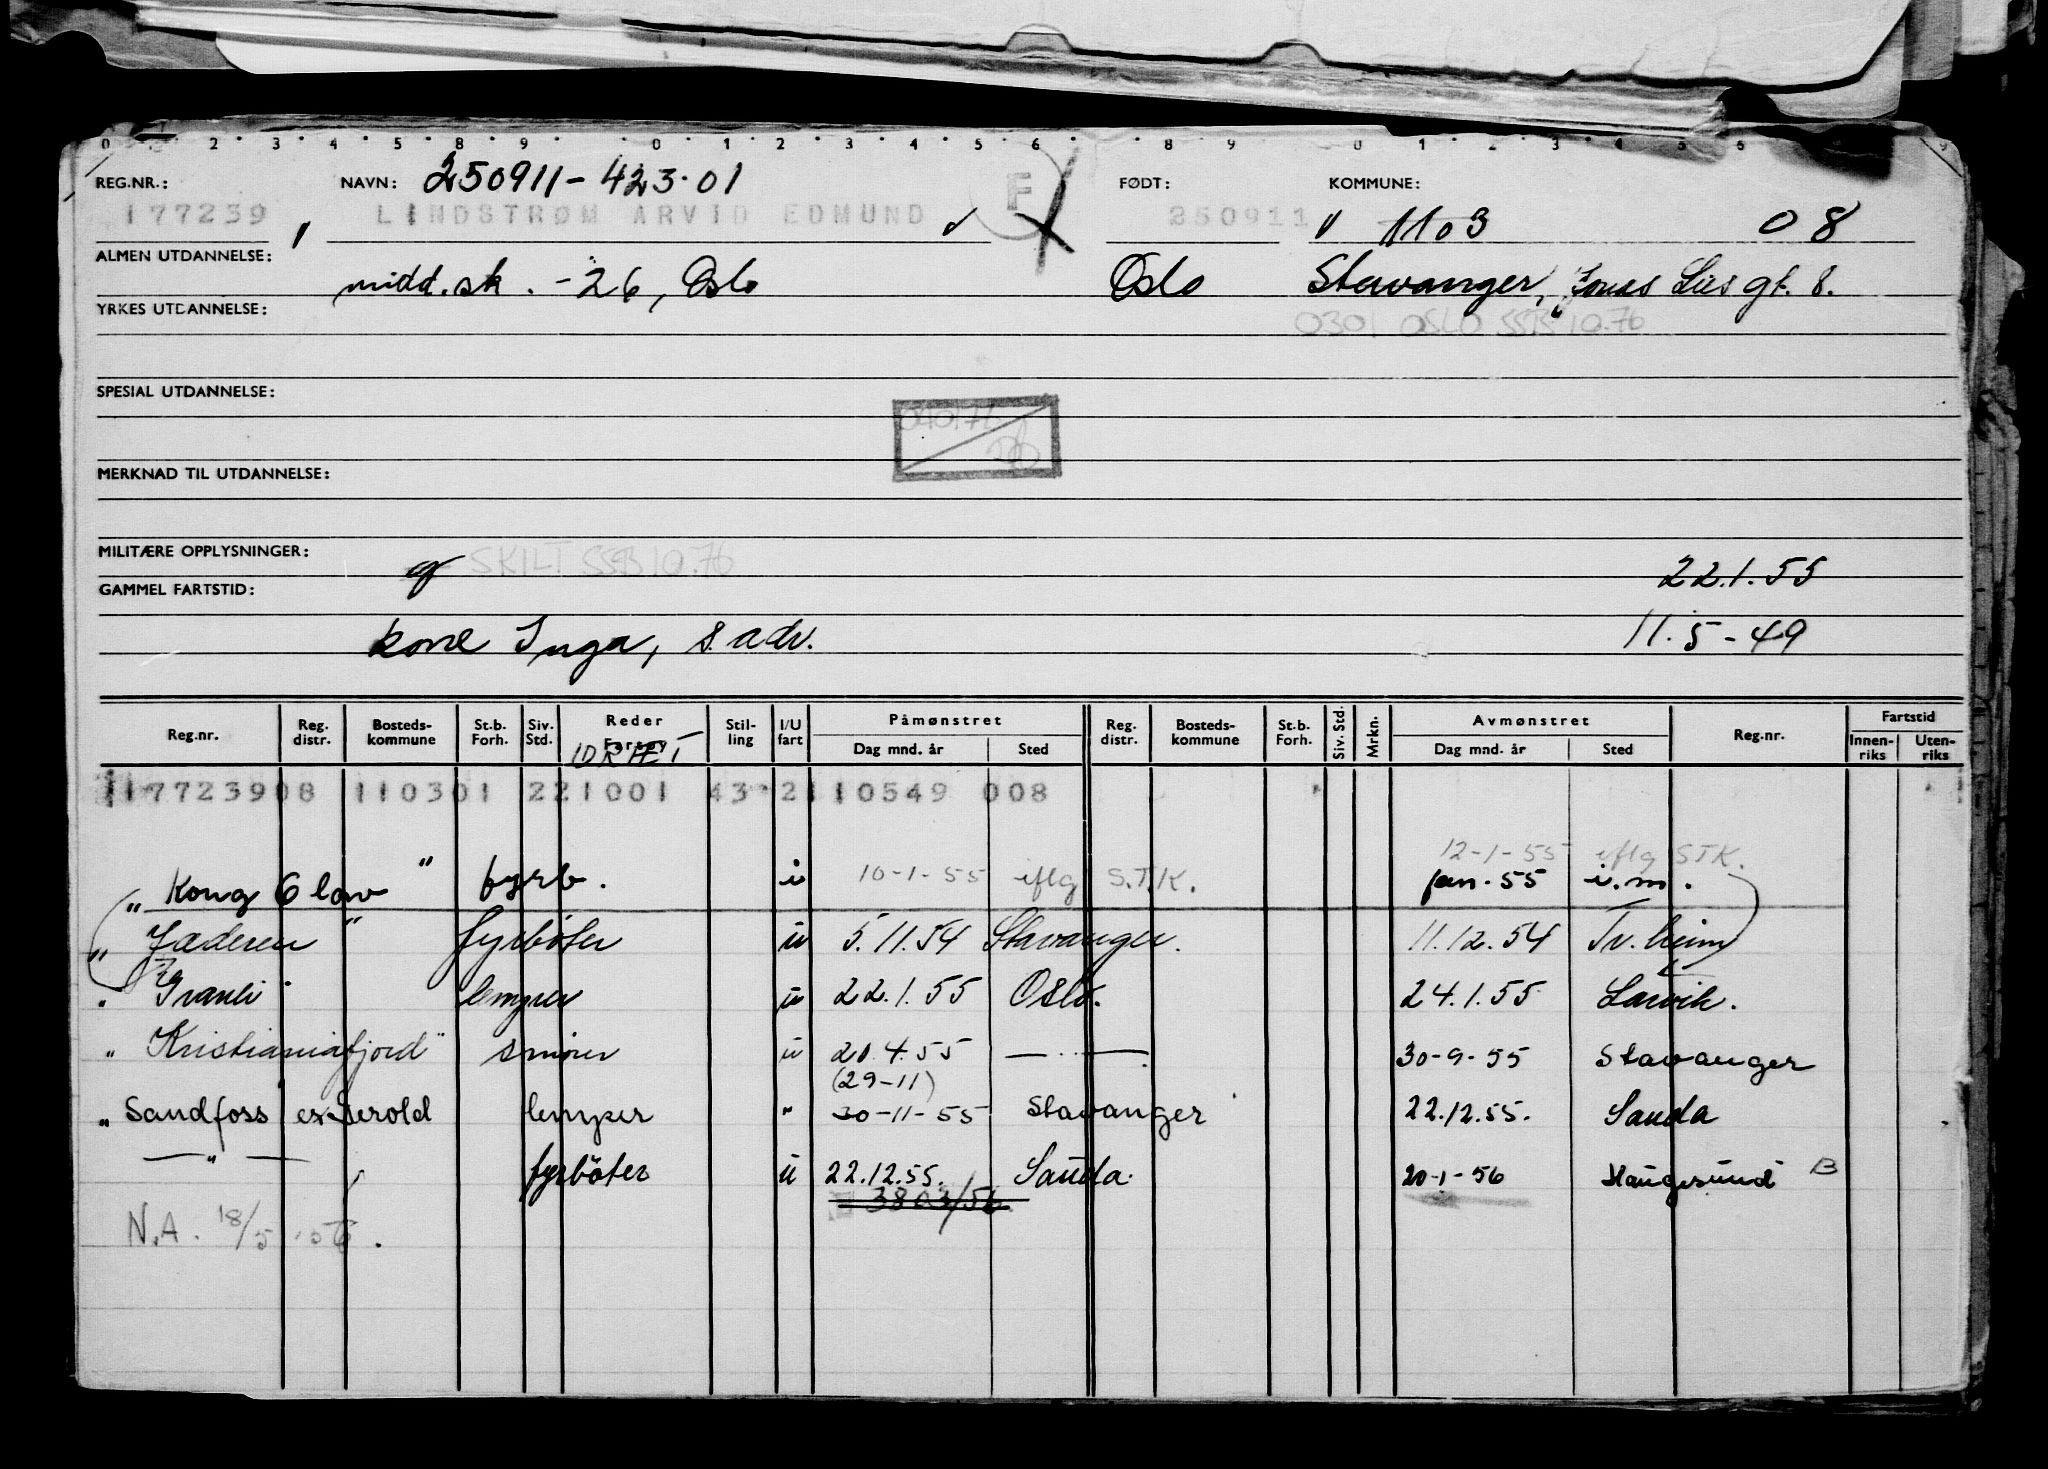 0 2 3 4 5 8 9 0 1 2 3 4 5 6 8 9 0 1 2 3 4 5 6 9
REG.NR.: NAVN: 250911-423.01 F FØDT: KOMMUNE:
177239 LINDSTRØM ARVID EDMUND 250911 1103 08
ALMEN UTDANNELSE: midd.sk. -26, Oslo Oslo Stavanger, Jonas Lies gt. 8.
YRKES UTDANNELSE: 0301 OSLO SSB 10.76
SPESIAL UTDANNELSE:
MERKNAD TIL UTDANNELSE:
MILITÆRE OPPLYSNINGER: g SKILT SSB 10.76 22.1.55
GAMMEL FARTSTID:
kone Inga, s.adr. 11.5-49
Reg.nr. Reg. distr. Bosteds- kommune St.b. Forh. Siv. Std. Reder Fartøy Stil- ling I/U fart Påmønstret Dag mnd. år Sted Reg. distr. Bosteds- kommune St.b. Forh. Siv. Std. Mrkn. Avmønstret Dag mnd. år Sted Reg.nr. Fartstid Innen- riks Uten- riks
IDRÆT
17723908 110301 221001 43 2 110549 008
12-1-55 iflg STK.
" Kong Olav " fyrb. i 10-1-55 iflg S.T.K. jan-55 i.m.
" Jæderen " fyrböter u 5.11.54 Stavanger. 11.12.54 Tr.heim
" Granli lemper u 22.1.55 Oslo. 24.1.55 Larvik.
" Kristianiafjord" smörer u 20.4.55 — " — 30-9-55 Stavanger
(29-11)
" Sandfoss ex Herold lemper " 30-11-55 Stavanger 22.12.55. Sauda
— " — fyrböter u 22.12.55. Sauda. 20-1-56 Haugesund B
3803/56
N.A. 18/5 .56.